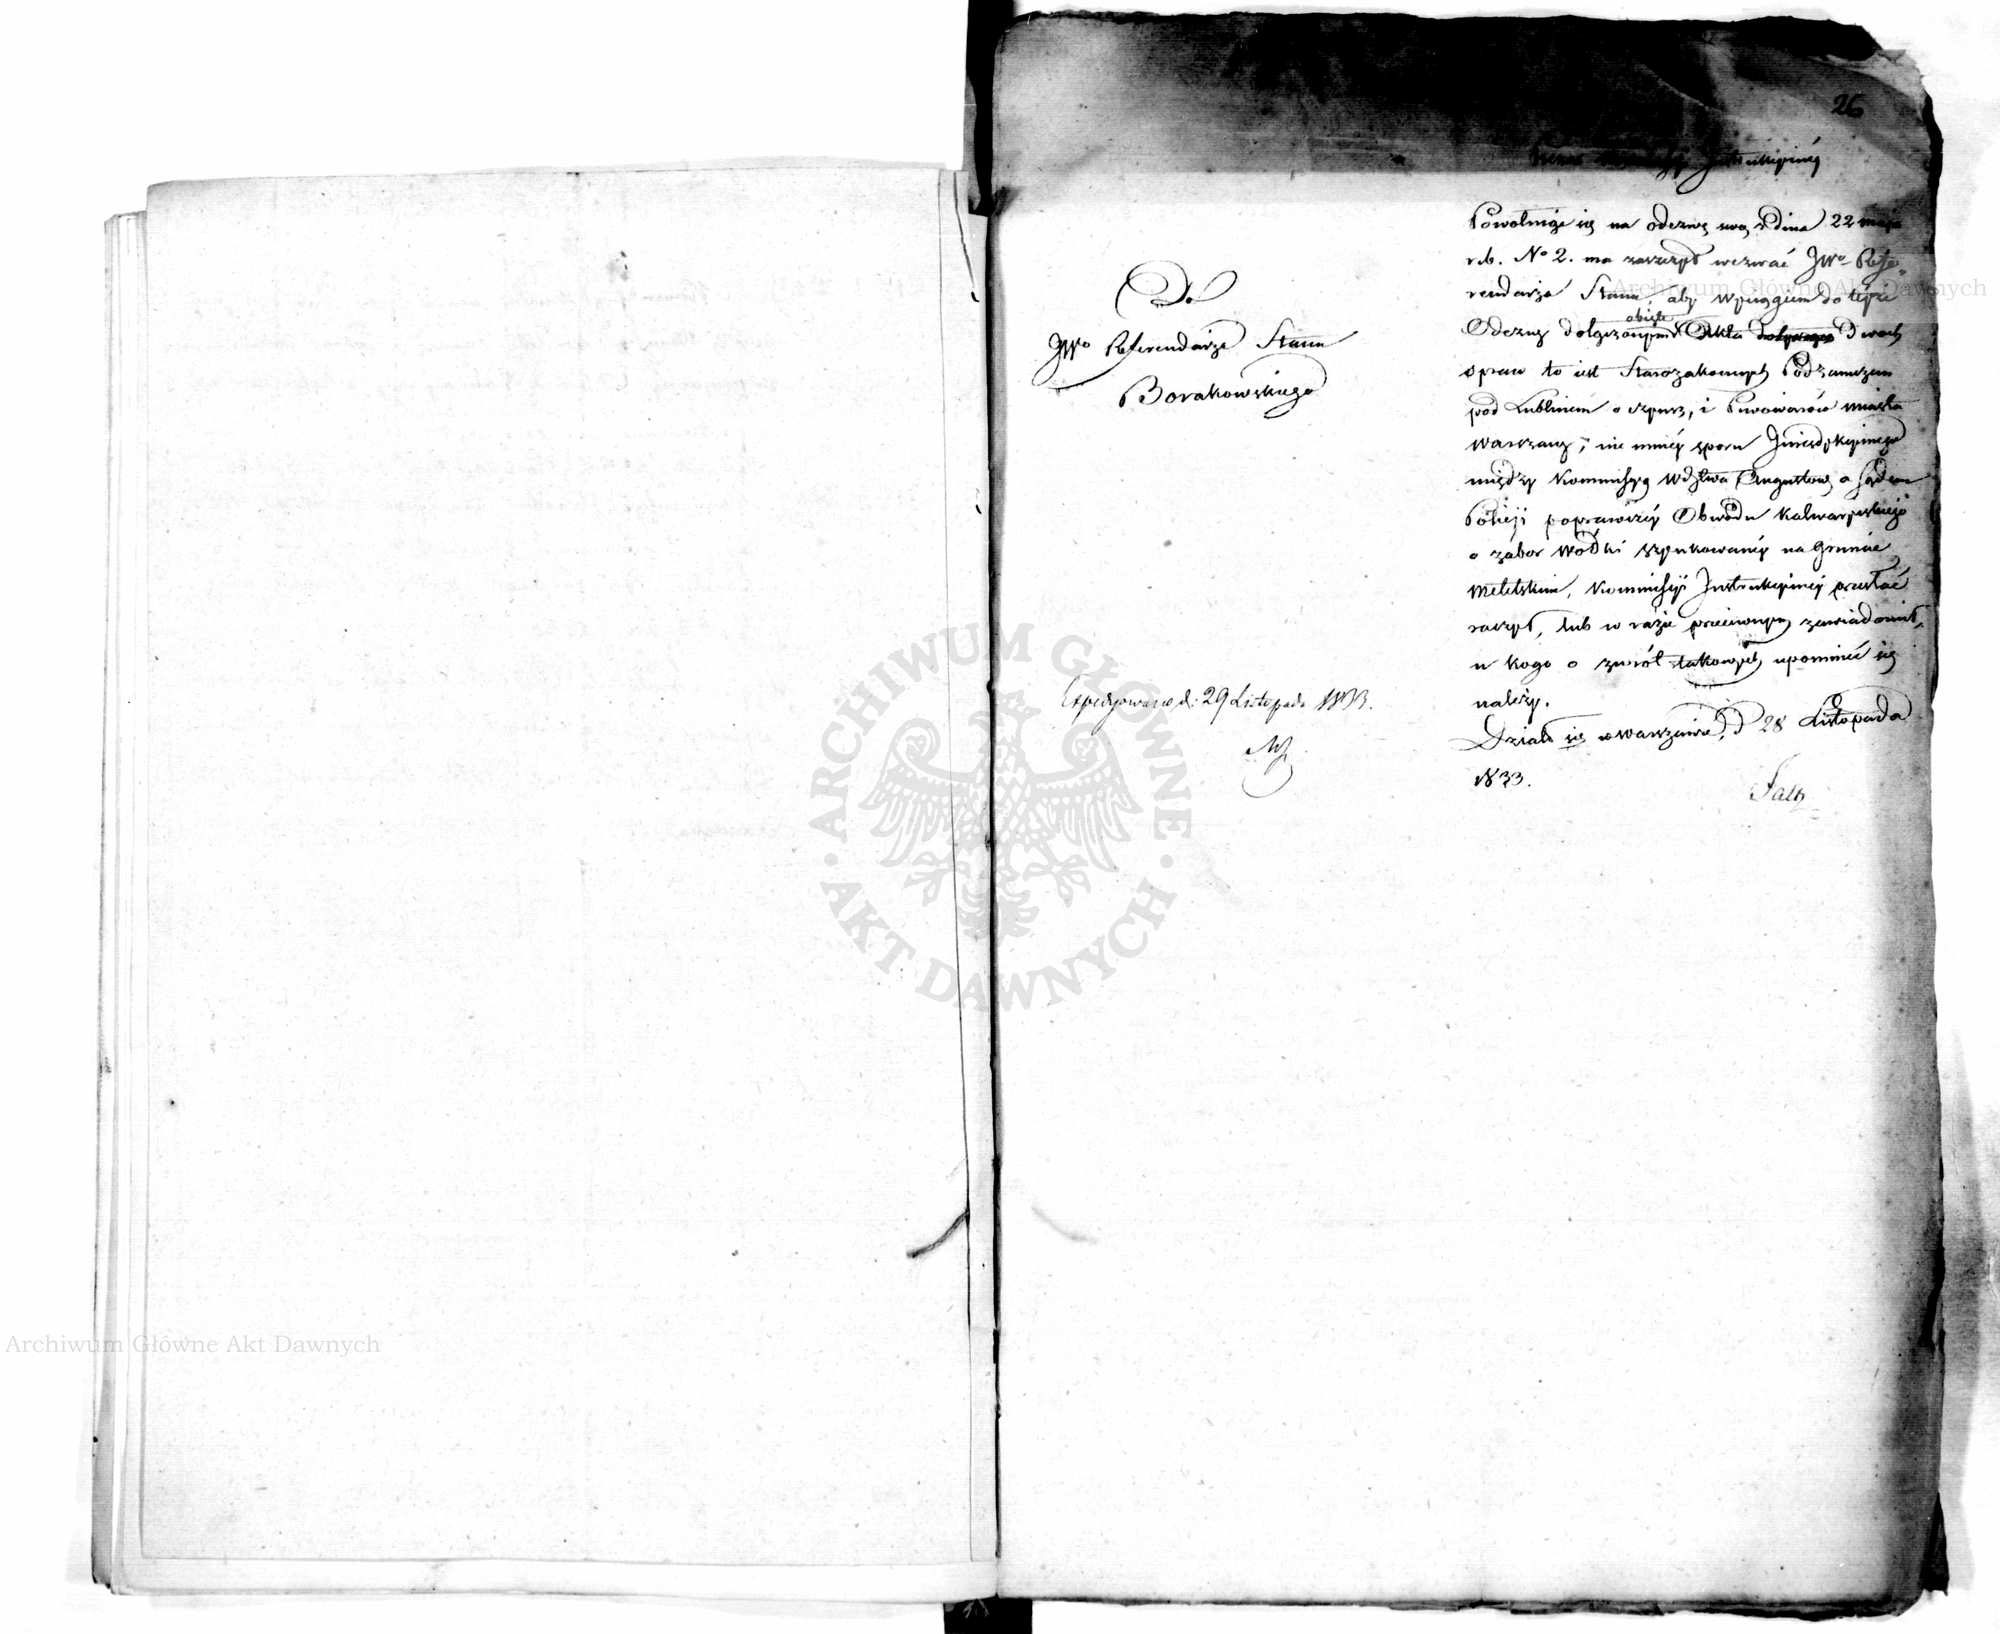 26
Prezes Kommissyi Instrukcyinéj
Powołując się na odezwę swą z dnia 22 maja
r.b. No 2. ma zaszczyt wezwać JWo Refe-
rendarza Stanu, aby w
Odezwy dołączonym obięte Akta dwóch
spraw to iest Starozakonnych Podzamczan
pod Lublinem o czynsz, i Piwowarów miasta
Warszawy, nie mniéj sporu Jurisdykcyinego
między Kommissyą Wdztwa Augustow. a Sądem
Policyi poprawczéj Obwodu Kalwaryiskiego
o zabor wódki szynkowanéj na gruncie
Kommissyi Instrukcyinéj przesłać
raczył, lub w razie przeciwnym zawiadomił,
u kogo o zwrót takowych upomnieć się
należy.
Działo się w Warszawie, d 28 Listopada
1833.
Do
JWo Referendarza Stanu
Borakowskiego
Expedyowano d: 29 Listopada 1833.
ARCHIWUM GŁÓWNE
AKT DAWNYCH
Archiwum Główne Akt Dawnych
Archiwum Główne Akt Dawnych